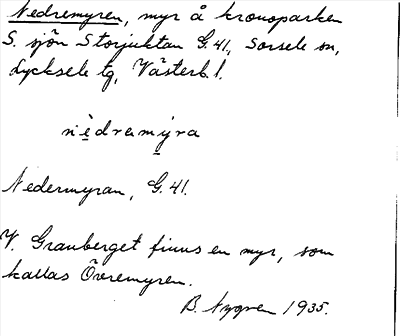 Nedremyren, myr å kronoparken
S. sjön Storjuktan G.41, Sorsele sn,
Lycksele tg, Västerb. l.
nèdramýra
Nedermyran, G.41.
V. Granberget finnes en myr, som
kallas Övremyren.
B. Nygren 1935.